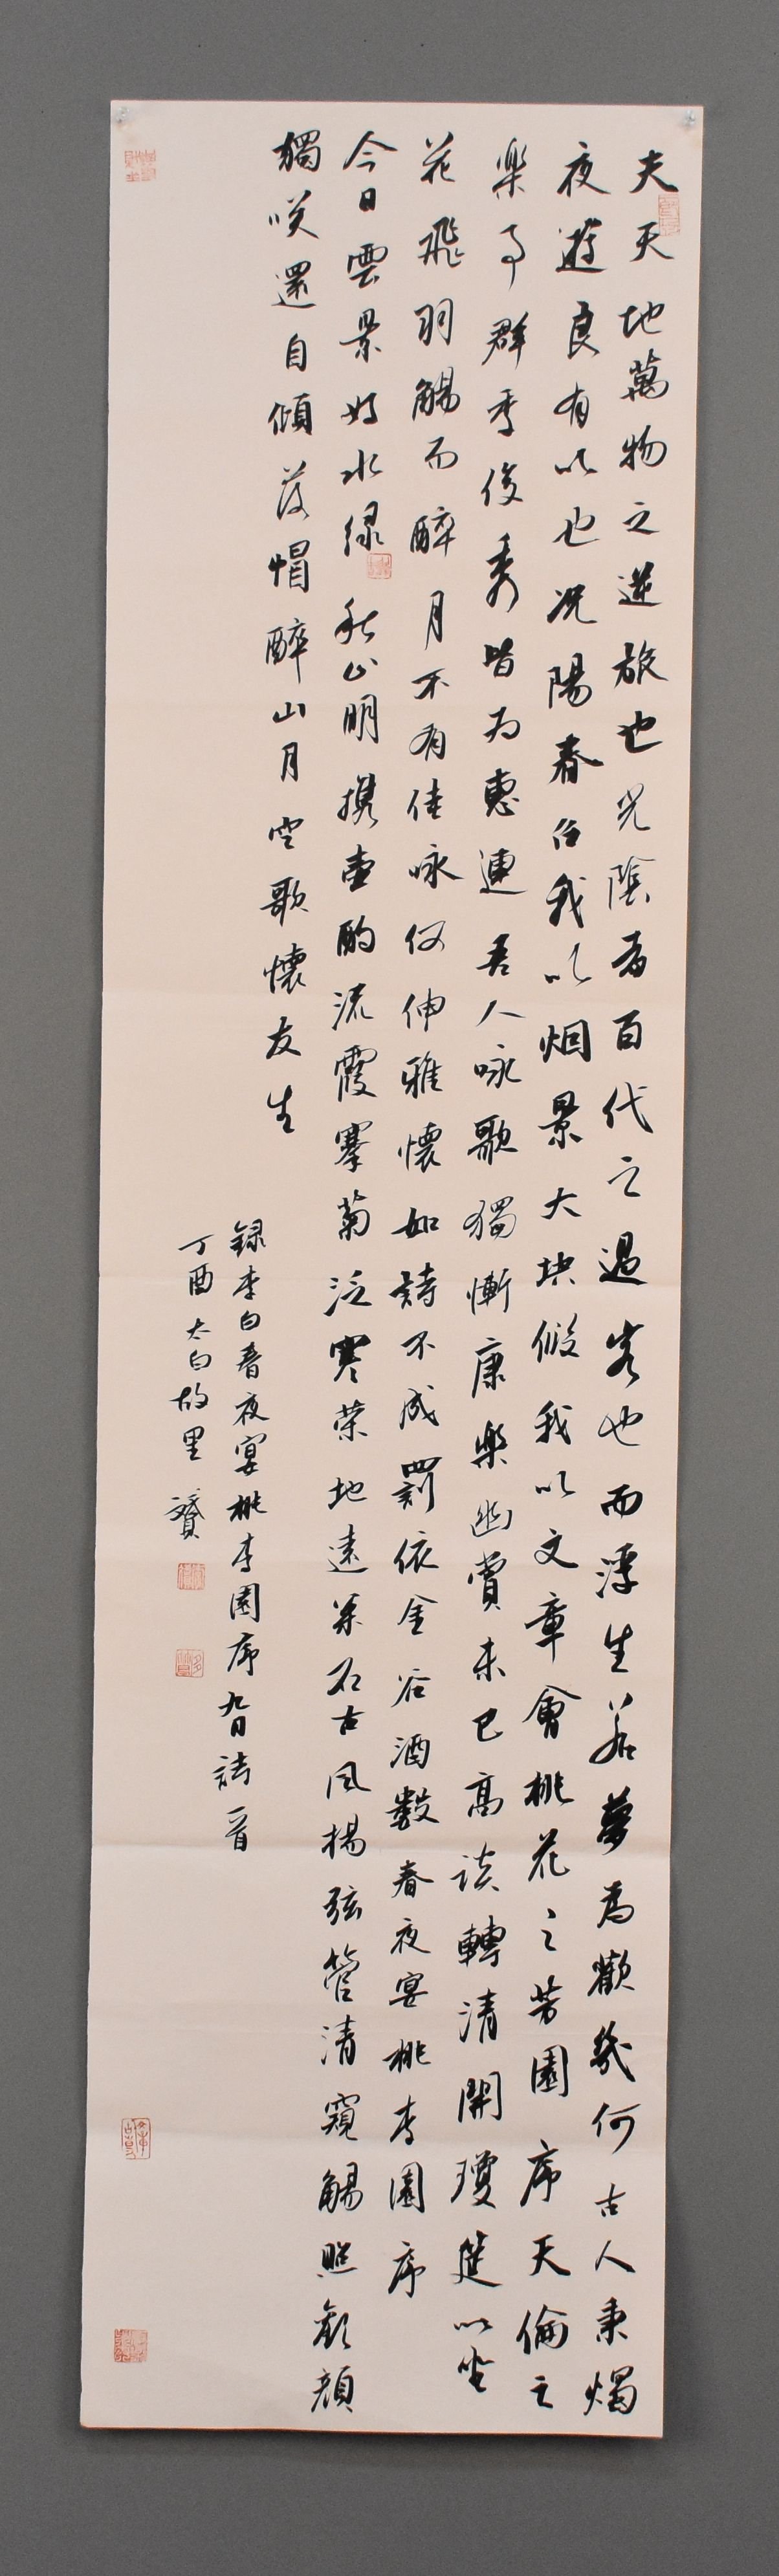 夫天地萬物之逆旅也光陰者百代之過客也而浮生若夢為歡幾何古人秉燭
夜遊良有以也况陽春召我以烟景大块假我以文章會桃花之芳園序天倫之
樂事群季俊秀皆為惠連吾人咏歌獨慚康樂幽賞未已高談轉清開瓊筵以坐
花飛羽觴而醉月不有佳咏何伸雅懷如詩不成罰依金谷酒數春夜宴桃李園序
今日雲景好水绿秋山明携壺酌流霞搴菊泛寒荣地遠松石古風揚弦管清窺觴照歡顏
獨咲還自傾落帽醉山月空歌懷友生
録李白春夜宴桃李園序九日詩一首
丁酉太白故里